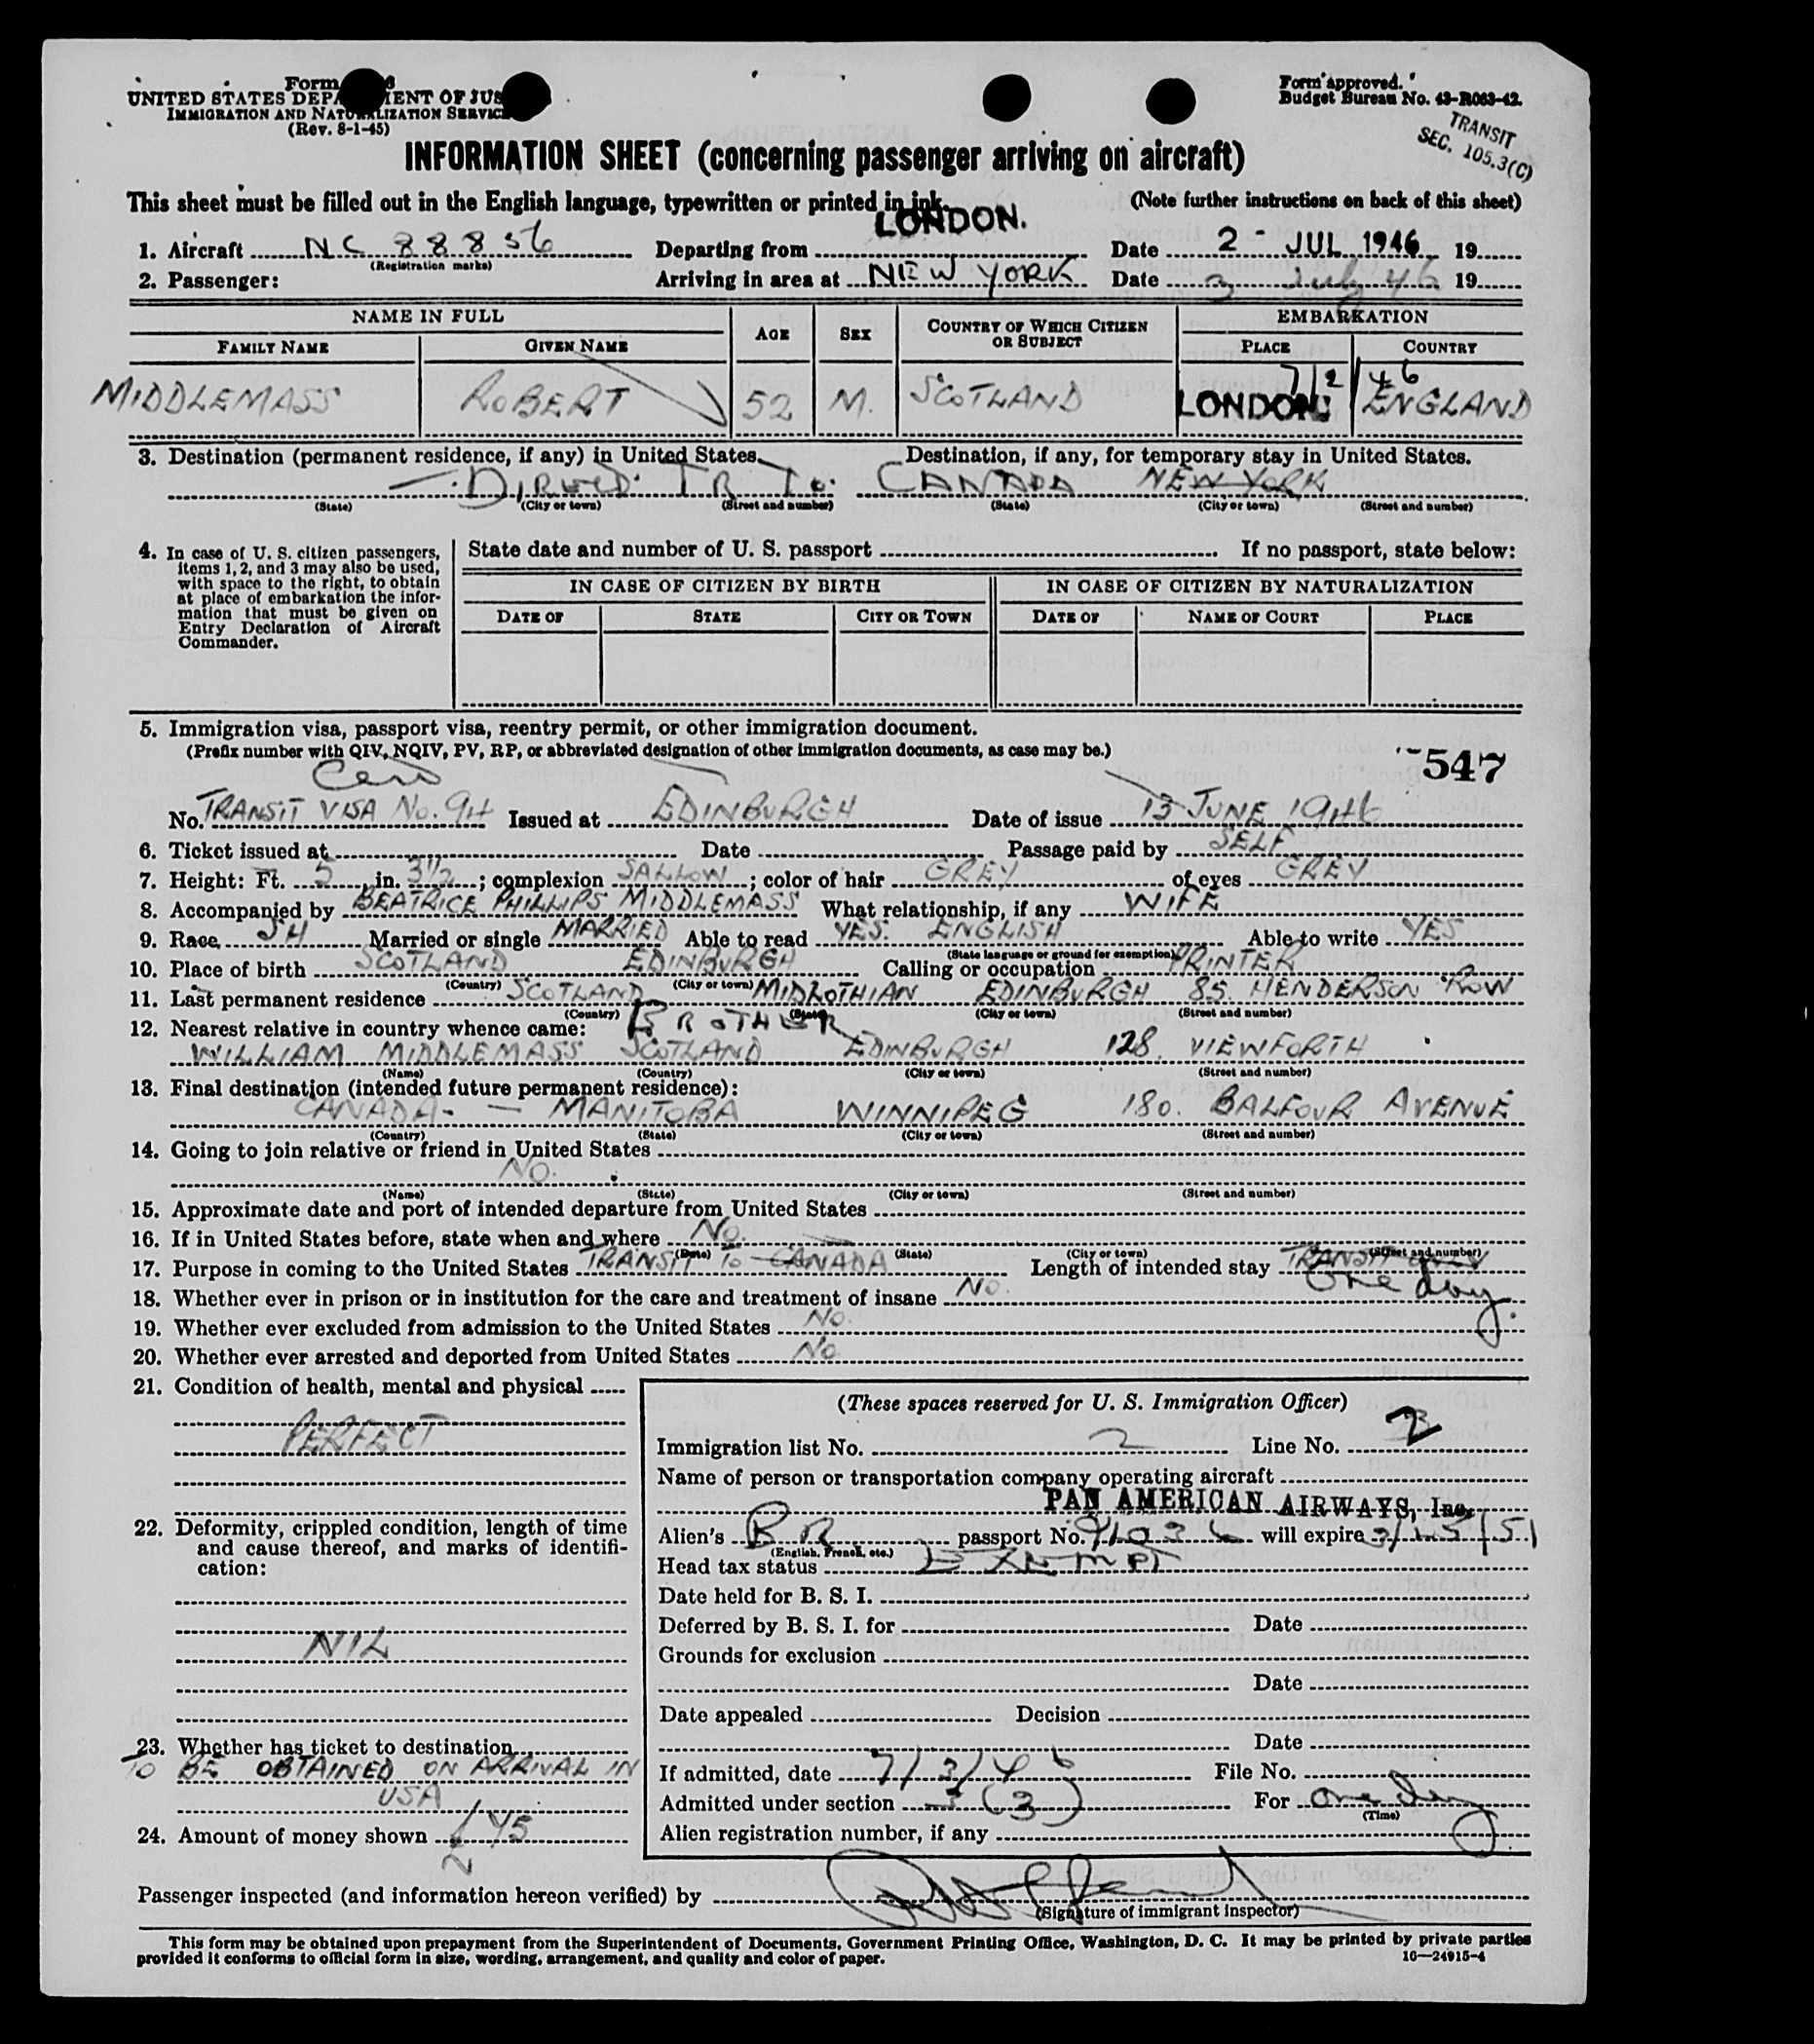 Form
UNITED STATES DEPARTMENT OF JUS
IMMIGRATION AND NATURALIZATION SERVICE
(Rev. 8-1-45)
Form approved.
Budget Bureau No. 43-R063-42.
TRANSIT
SEC. 105.3(C)
INFORMATION SHEET (concerning passenger arriving on aircraft)
This sheet must be filled out in the English language, typewritten or printed in ink. (Note further instructions on back of this sheet)
1. Aircraft NC 88856 Departing from LONDON. Date 2 - JUL 1946 19
(Registration marks)
2. Passenger: Arriving in area at NEW YORK Date 3 July 46 19
NAME IN FULL AGE SEX COUNTRY OF WHICH CITIZEN OR SUBJECT EMBARKATION
FAMILY NAME GIVEN NAME PLACE COUNTRY
7/2/46
MIDDLEMASS ROBERT 52 M. SCOTLAND LONDON. ENGLAND
3. Destination (permanent residence, if any) in United States. Destination, if any, for temporary stay in United States.
DIRECT TR To CANADA NEW YORK
(State) (City or town) (Street and number) (State) (City or town) (Street and number)
4. In case of U. S. citizen passengers, items 1, 2, and 3 may also be used, with space to the right, to obtain at place of embarkation the information that must be given on Entry Declaration of Aircraft Commander.
State date and number of U. S. passport If no passport, state below:
IN CASE OF CITIZEN BY BIRTH IN CASE OF CITIZEN BY NATURALIZATION
DATE OF STATE CITY OR TOWN DATE OF NAME OF COURT PLACE
5. Immigration visa, passport visa, reentry permit, or other immigration document.
(Prefix number with QIV, NQIV, PV, RP, or abbreviated designation of other immigration documents, as case may be.)
547
No. TRANSIT VISA No. 94 Issued at EDINBURGH Date of issue 13 JUNE 1946
6. Ticket issued at Date Passage paid by SELF
7. Height: Ft. 5 in. 3½ ; complexion SALLOW ; color of hair GREY of eyes GREY
8. Accompanied by BEATRICE PHILLIPS MIDDLEMASS What relationship, if any WIFE
9. Race SH Married or single MARRIED Able to read YES. ENGLISH Able to write YES
(State language or ground for exemption)
10. Place of birth SCOTLAND EDINBURGH Calling or occupation PRINTER
(Country) (City or town)
11. Last permanent residence SCOTLAND MIDLOTHIAN EDINBURGH 85. HENDERSON ROW
(Country) (State) (City or town) (Street and number)
12. Nearest relative in country whence came: BROTHER
WILLIAM MIDDLEMASS SCOTLAND EDINBURGH 128. VIEWFORTH
(Name) (Country) (City or town) (Street and number)
13. Final destination (intended future permanent residence):
CANADA - MANITOBA WINNIPEG 180. BALFOUR AVENUE
(Country) (State) (City or town) (Street and number)
14. Going to join relative or friend in United States
NO.
(Name) (State) (City or town) (Street and number)
15. Approximate date and port of intended departure from United States
16. If in United States before, state when and where NO.
(Date) (State) (City or town) (Street and number)
17. Purpose in coming to the United States TRANSIT TO CANADA Length of intended stay TRANSIT ONLY
One day.
18. Whether ever in prison or in institution for the care and treatment of insane NO.
19. Whether ever excluded from admission to the United States NO.
20. Whether ever arrested and deported from United States NO
21. Condition of health, mental and physical
PERFECT
22. Deformity, crippled condition, length of time and cause thereof, and marks of identification:
NIL
23. Whether has ticket to destination
TO BE OBTAINED ON ARRIVAL IN
USA
24. Amount of money shown £45
(These spaces reserved for U. S. Immigration Officer)
Immigration list No. 2 Line No. 2
Name of person or transportation company operating aircraft
PAN AMERICAN AIRWAYS, Inc.
Alien's BR passport No. will expire
(English, French, etc.)
Head tax status EXEMPT
Date held for B. S. I.
Deferred by B. S. I. for Date
Grounds for exclusion
Date
Date appealed Decision
Date
If admitted, date 7/3/46 File No.
Admitted under section 3(3) For one day
(Time)
Alien registration number, if any
Passenger inspected (and information hereon verified) by
(Signature of immigrant inspector)
This form may be obtained upon prepayment from the Superintendent of Documents, Government Printing Office, Washington, D. C. It may be printed by private parties
provided it conforms to official form in size, wording, arrangement, and quality and color of paper. 16—24915-4